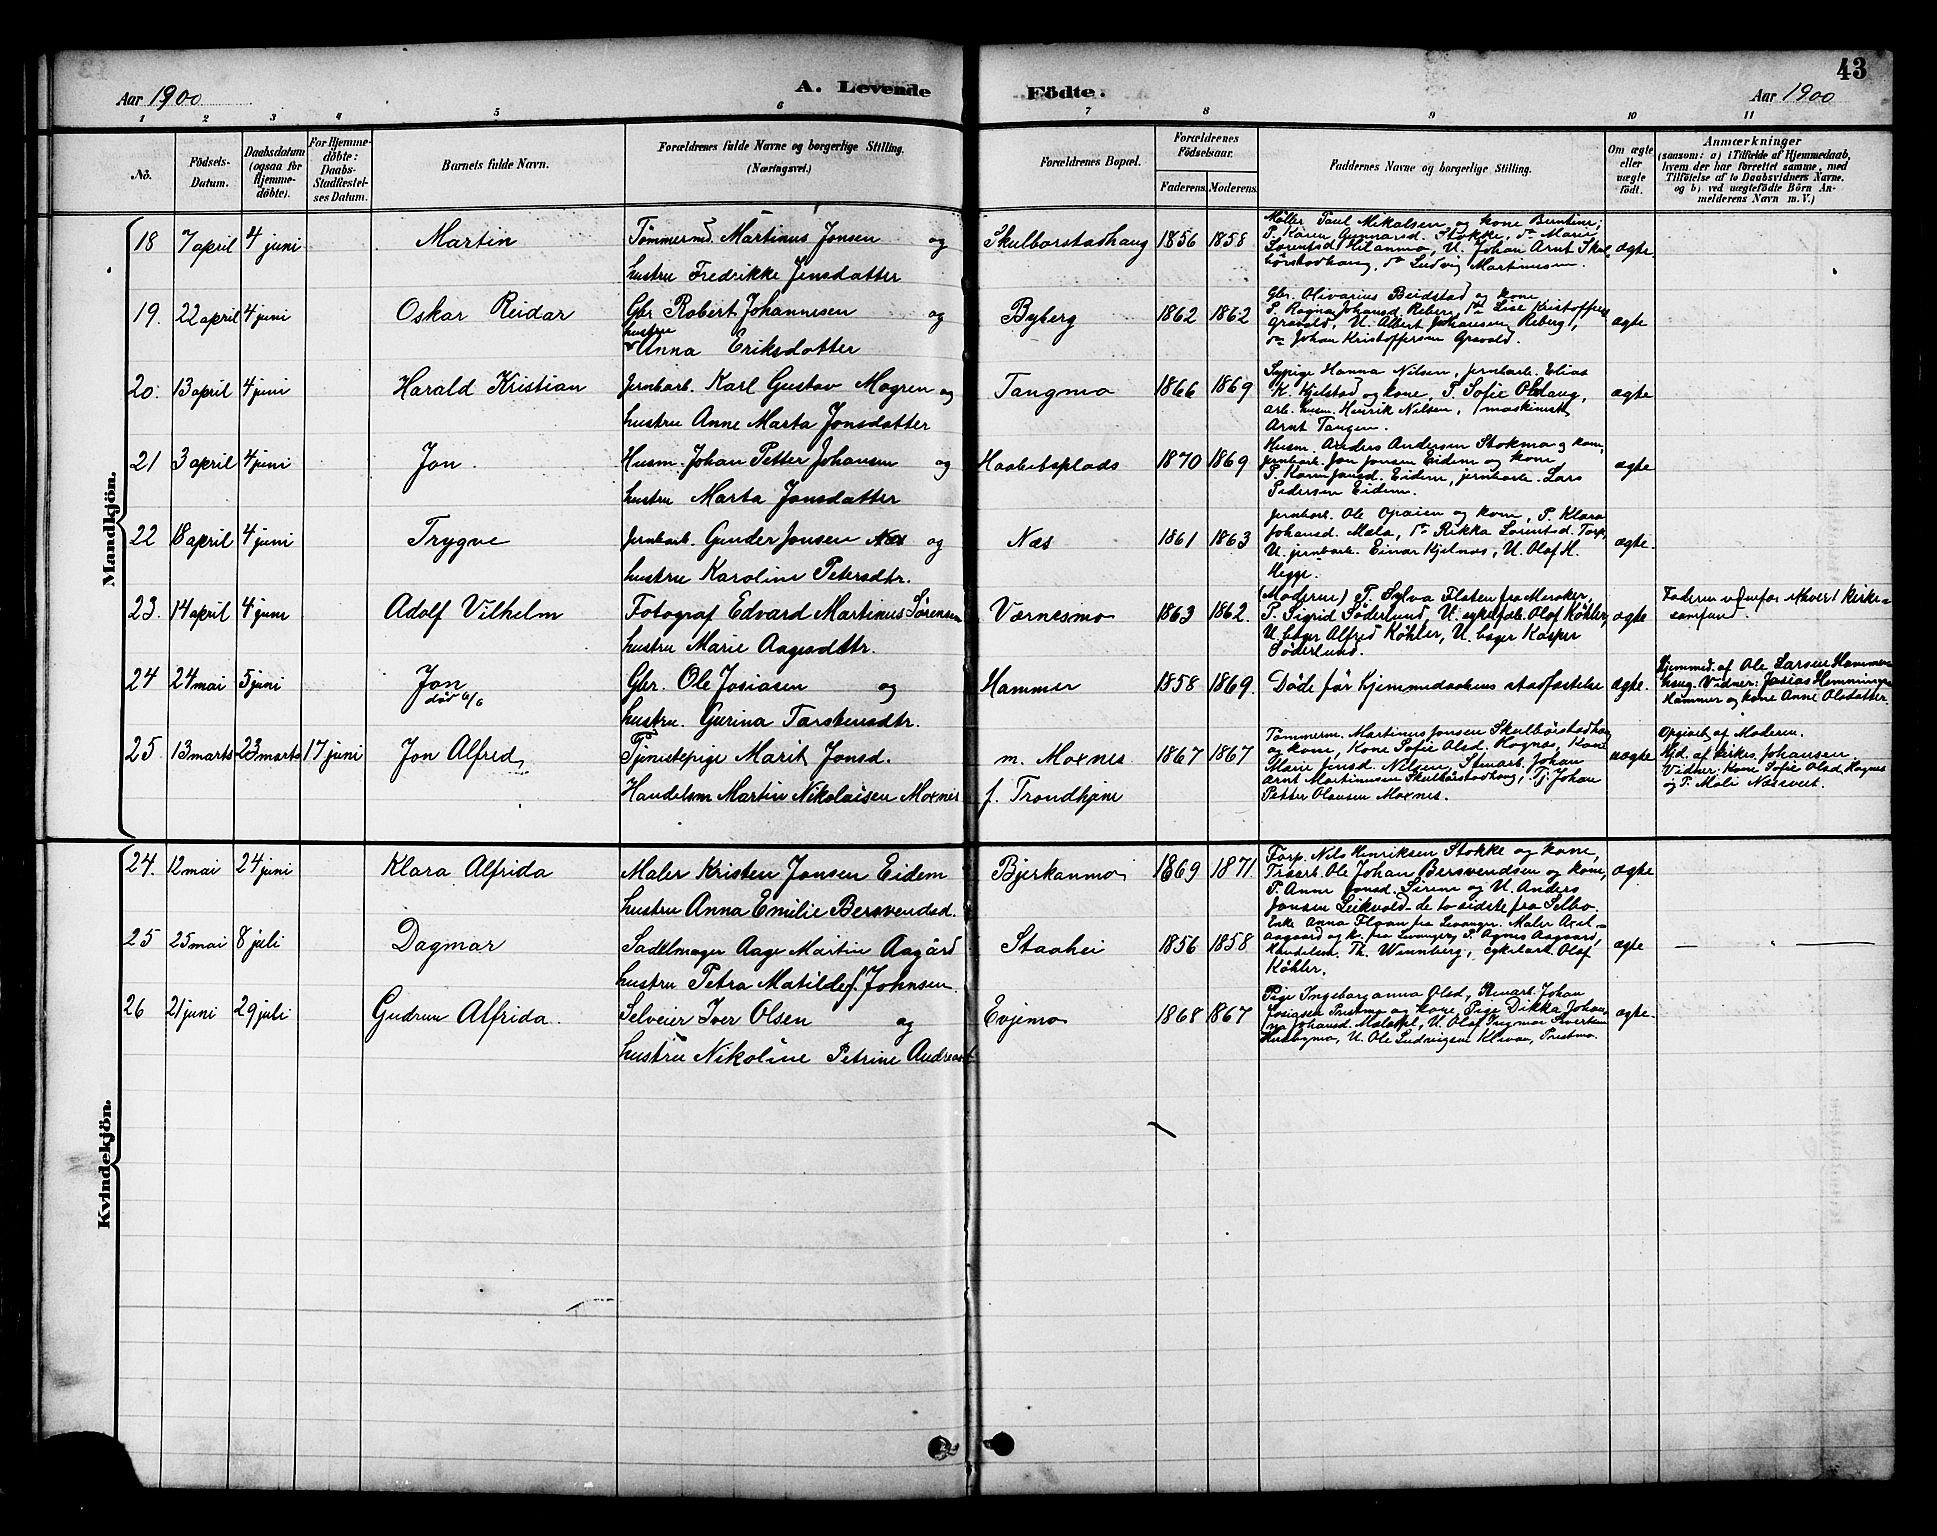 43
Aar 1900
A. Levende
Födte.
Aar 1900
1 2 3 4 5 6 7 8 9 10 11
No.
Födsels-
Datum.
Daabsdatum
(ogsaa for
Hjemme-
döbte).
For Hjemme-
döbte:
Daabs-
Stadfæstel-
ses Datum.
Barnets fulde Navn.
Forældrenes fulde Navne og borgerlige Stilling.
(Næringsvei.)
Forældrenes Bopæl.
Forældrenes
Födselsaar.
Faderens. Moderens.
Faddernes Navne og borgerlige Stilling.
Om ægte
eller
uægte
født.
Anmærkninger
(saasom: a) i Tilfælde af Hjemmedaab,
hvem der har forrettet samme, med
Tilföielse af to Daabsvidners Navne.
og b) ved uægtefödte Börn An-
melderens Navn m. V.)
Mandkjön.
18 7 april 4 juni Martin
Tømmermd. Martinus Jonsen og
hustru Fredrikke Jensdatter
Skulborstadhaug 1856 1858
Møller Paul Mikalsen og kone Berntine,
P. Karen Gunnarsd. Stokke, do Marie
Lorentsd. Hilanmo, U. Johan Arnt Skul
børstadhaug, do Ludvig Martinusen.
ægte.
19. 22 april 4 juni Oskar Reidar
Gbr Robert Johannesen og
hustru
Anna Eriksdatter
Byberg 1862 1862
Gbr. Olivarius Beidstad og kone
P. Ragna Johansd. Reberg, do Lise Kristoffers
Gravald, U. Albert Johansen Reberg,
do Johan Kristoffersen Gravald.
ægte
20. 13 april 4 juni Harald Kristian
Jernbarb. Karl Gustav Mogren og
hustru Anne Marta Jonsdatter
Tangmo 1866 1869
Sypige Hanna Nilsen, jernbarb. Elias
K. Kjelstad og kone, P. Sofie Oldaug,
arb. husm. Henrik Nilsen, maskinist
Arnt Tangen.
ægte
21 3 april 4 juni Jon.
Husm. Johan Petter Johansen og
hustru Marta Jonsdatter
Haabetsplads 1870 1869
Husm. Anders Andersen Stokmo og kone,
jernbarb. Jon Jonsen Eidem og kone
P. Karen Jonsd. Eidem, jernbarb. Lars
Pedersen Eidem.
ægte
22 18 april 4 juni Trygve
Jernbarb. Gunder Jonsen Næs og
hustru Karoline Petersdtr.
Næs 1861 1863
Jernbarb. Ole Opaien og kone, P. Klara
Johansd. Mæla, do Rikka Lorentsd. Torp,
U. jernbarb. Einar Kjelnæs, U. Olaf H.
Hegge.
ægte.
23. 14 april 4 juni Adolf Vilhelm
Fotograf Edvard Martinus Sørensen
hustru Marie Aagesdttr.
Værnesmo 1863 1862.
(Moderen) P. Sylva Flaten fra Meroker,
P. Sigrid Söderlund, U. cykelfab. Olaf Köhler,
U. bager Alfred Köhler, U. bager Kasper
Söderlund.
ægte
Faderen udenfor ethvert kirke-
samfund.
24 24 mai 5 juni Jon
død 6/6
Gbr. Ole Josiasen og
hustru. Gurina Torstensdtr.
Hammer 1858 1869.
Døde før hjemmedaabens stadfæstelse
ægte.
Hjemmed. af Ole Larsen Hammers
haug. Vidner: Josias Hemmingsen
Hammer og kone Anne Olsdatter.
25. 13 marts 23 marts 17 juni Jon Alfred
Tjenestepige Marit Jonsd.
Handelsm Martin Nikolaisen Moxnes
m. Moxnes
f. Trondhjem
1867 1867
Tømmerm. Martinus Jonsen Skulbørstadhaug
og kone, Kone Sofie Olsd. Hognæs, Kone
Marie Jensd. Nelsen, Stenarb. Johan
Arnt Martinusen Skulbørstadhaug, Tj. Johan
Petter Olausen Moxnes.
uægte
Opgivet af Moderen.
Hjd. af kirkes. Johansen
Vidner: Kone Sofie Olsd. Hognes
og P. Mali Næsvert.
Kvindekjön.
24. 12 mai 24 juni Klara Alfrida
Maler Kristen Jonsen Eidem
hustru Anna Emilie Bersvendsd.
Bjerkanmo 1869 1871.
Forp. Nils Henriksen Stokke og kone,
Træarb. Ole Johan Bersvendsen og kone,
P. Anne Jonsd. Sirem og U. Anders
Jonsen Leikvold - de to sidste fra Selbo.
ægte
25 25 mai 8 juli Dagmar
Sadelmager Aage Martin Aagård
hustru Petra Matilde f. Johnsen.
Staahei 1856 1858
Enke Anna Floan fra Levanger. Maler Axel
Aagaard og k. fra Levanger, P. Agnes Aagaard,
Handelsm. Th. Wennberg, cykelarb. Olaf
Köhler.
ægte
26 21 juni 29 juli Gudrun Alfrida.
Selveier Iver Olsen og
hustru Nikoline Petrine Andreasd.
Evjemo 1868 1867
Pige Ingeborganna Olsd, Stenarb. Johan
Josiasen Prestmo og kone, Pige Dikka Johan
na Johansd. Malapl, U. Olaf Ingmar Sivertsen
Husbymo, U. Ole Ludvigsen Klevan, Prestmo.
ægte.